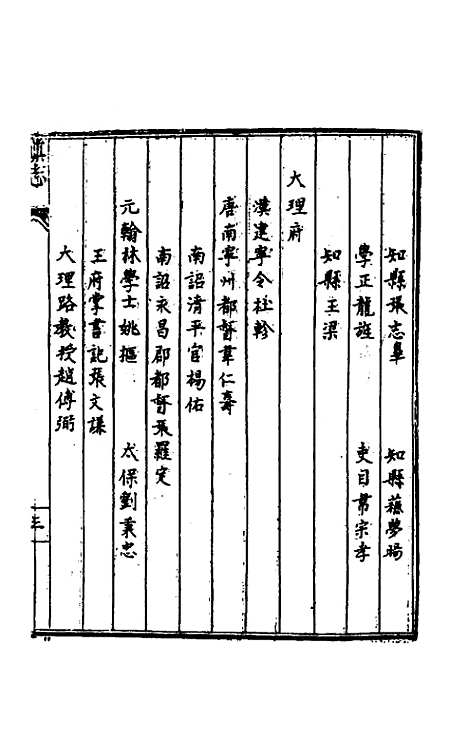 知縣張志皐　知縣蘇夢暘
學正龍旌　吏目常宗孝
知縣王梁
大理府
漢建寧令杜軫
唐南寧州都督韋仁壽
南詔清平官楊佑
南詔永昌郡都督張羅疋
元翰林學士姚摳　太保劉秉忠
王府掌書記張文謙
大理路教授趙傅弼
滇志